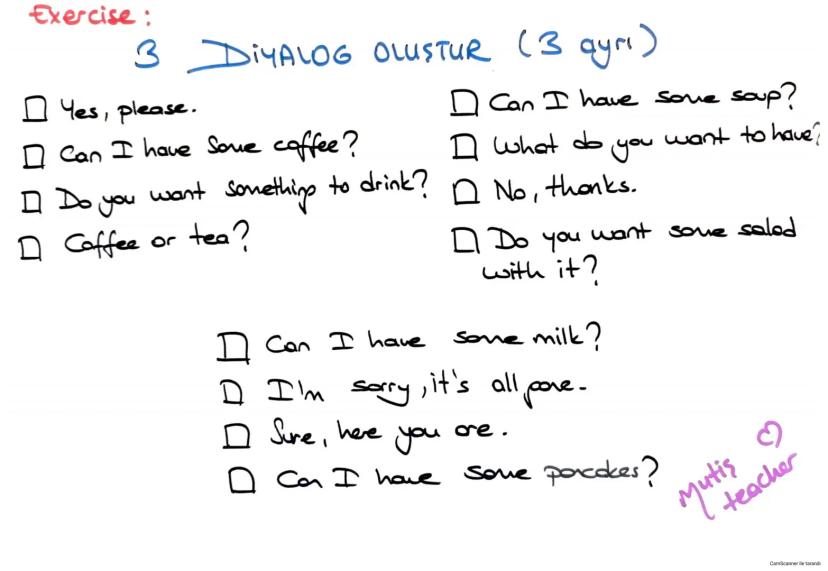 Exercise:
3 DİYALOG OLUSTUR (3 ayrı)
Yes, please.
Can I have some coffee?
Do you want something to drink?
Coffee or tea?
Can I have some soup?
What do you want to have?
No, thanks.
Do you want some salad
with it?
Can I have some milk?
I'm sorry, it's all gone.
Sure, here you are.
Can I have some pancakes?
Mutiş
teacher
CamScanner ile tarandı